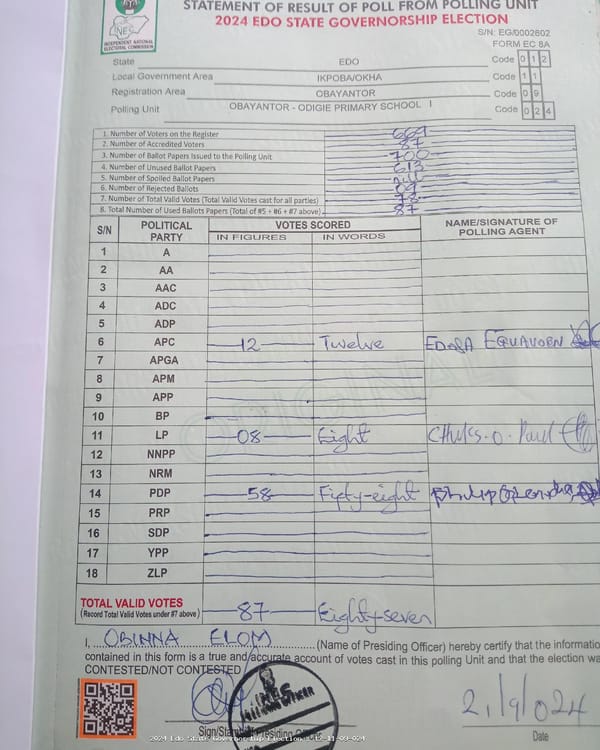 STATEMENT OF RESULT OF POLL FROM POLLING UNIT
2024 EDO STATE GOVERNORSHIP ELECTION
S/N: EG/0002802
FORM EC 8A
INEC
INDEPENDENT NATIONAL ELECTORAL COMMISSION
State EDO Code 0 1 2
Local Government Area IKPOBA/OKHA Code 1 1
Registration Area OBAYANTOR Code 0 9
Polling Unit OBAYANTOR - ODIGIE PRIMARY SCHOOL I Code 0 2 4
1. Number of Voters on the Register 669
2. Number of Accredited Voters 87
3. Number of Ballot Papers Issued to the Polling Unit 700
4. Number of Unused Ballot Papers 613
5. Number of Spoiled Ballot Papers
6. Number of Rejected Ballots 09
7. Number of Total Valid Votes (Total Valid Votes cast for all parties) 78
8. Total Number of Used Ballots Papers (Total of #5 + #6 + #7 above) 87
S/N POLITICAL PARTY VOTES SCORED NAME/SIGNATURE OF POLLING AGENT
IN FIGURES IN WORDS
1 A
2 AA
3 AAC
4 ADC
5 ADP
6 APC 12 Twelve
7 APGA
8 APM
9 APP
10 BP
11 LP 08 Eight Chuks-O-Paul
12 NNPP
13 NRM
14 PDP 58 Fifty-eight
15 PRP
16 SDP
17 YPP
18 ZLP
TOTAL VALID VOTES 87 Eighty-seven
(Record Total Valid Votes under #7 above)
I, OBINNA ELOM (Name of Presiding Officer) hereby certify that the informatio
contained in this form is a true and accurate account of votes cast in this polling Unit and that the election wa
CONTESTED/NOT CONTESTED
2/9/024
Date